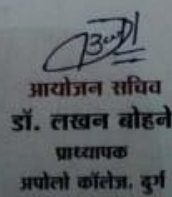 आयोजन सचिव
डॉ. लखन बोहने
प्राध्यापक
अपोलो कॉलेज, दुर्ग